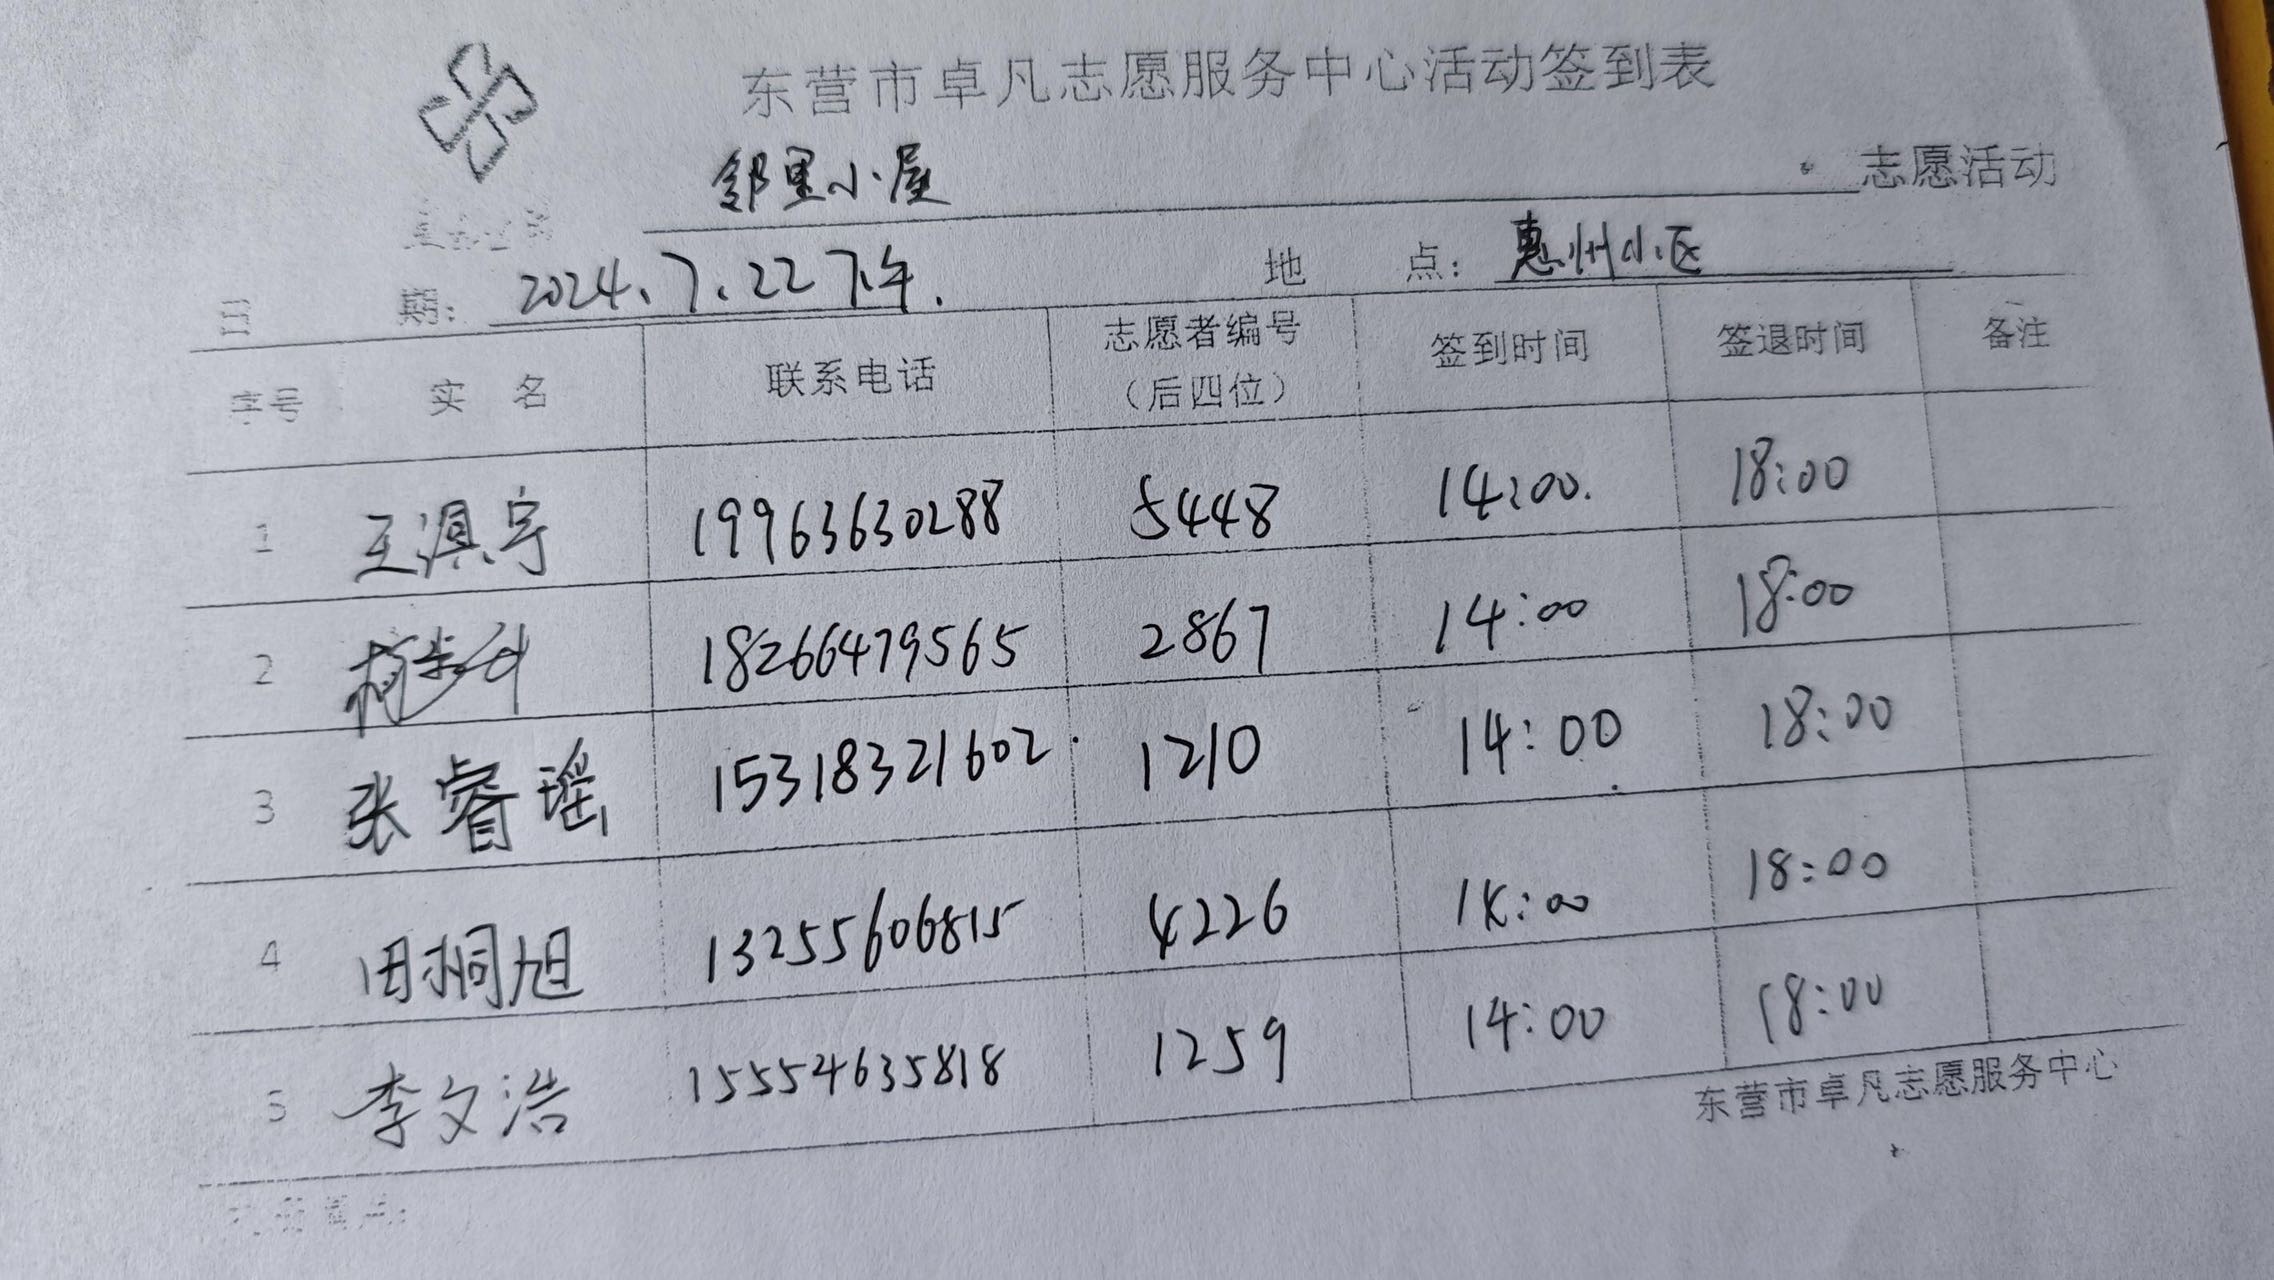 东营市卓凡志愿服务中心活动签到表
邻里小屋 志愿活动
日 期: 2024.7.22下午. 地 点: 惠州小区
序号 实 名 联系电话 志愿者编号（后四位） 签到时间 签退时间 备注
1 王淏宇 19963630288 5448 14:00. 18:00
2 18266479565 2867 14:00 18:00
3 张睿瑶 15318321602 1210 14:00 18:00
4 田桐旭 13255606815 4226 14:00 18:00
5 李文浩 15554635818 1259 14:00 18:00
东营市卓凡志愿服务中心